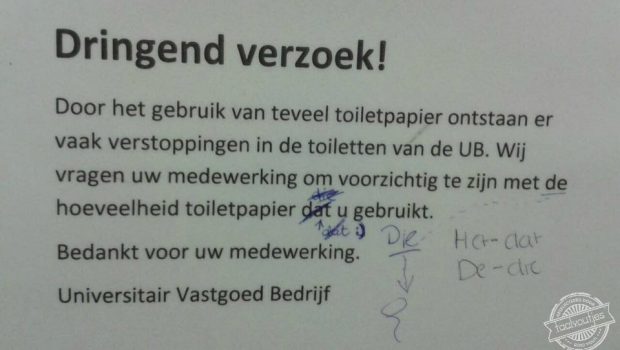 Dringend verzoek!
Door het gebruik van teveel toiletpapier ontstaan er
vaak verstoppingen in de toiletten van de UB. Wij
vragen uw medewerking om voorzichtig te zijn met de
die
hoeveelheid toiletpapier dat u gebruikt.
dat :)
Die
Het-dat
De-die
Bedankt voor uw medewerking.
Universitair Vastgoed Bedrijf
taalvoutjes